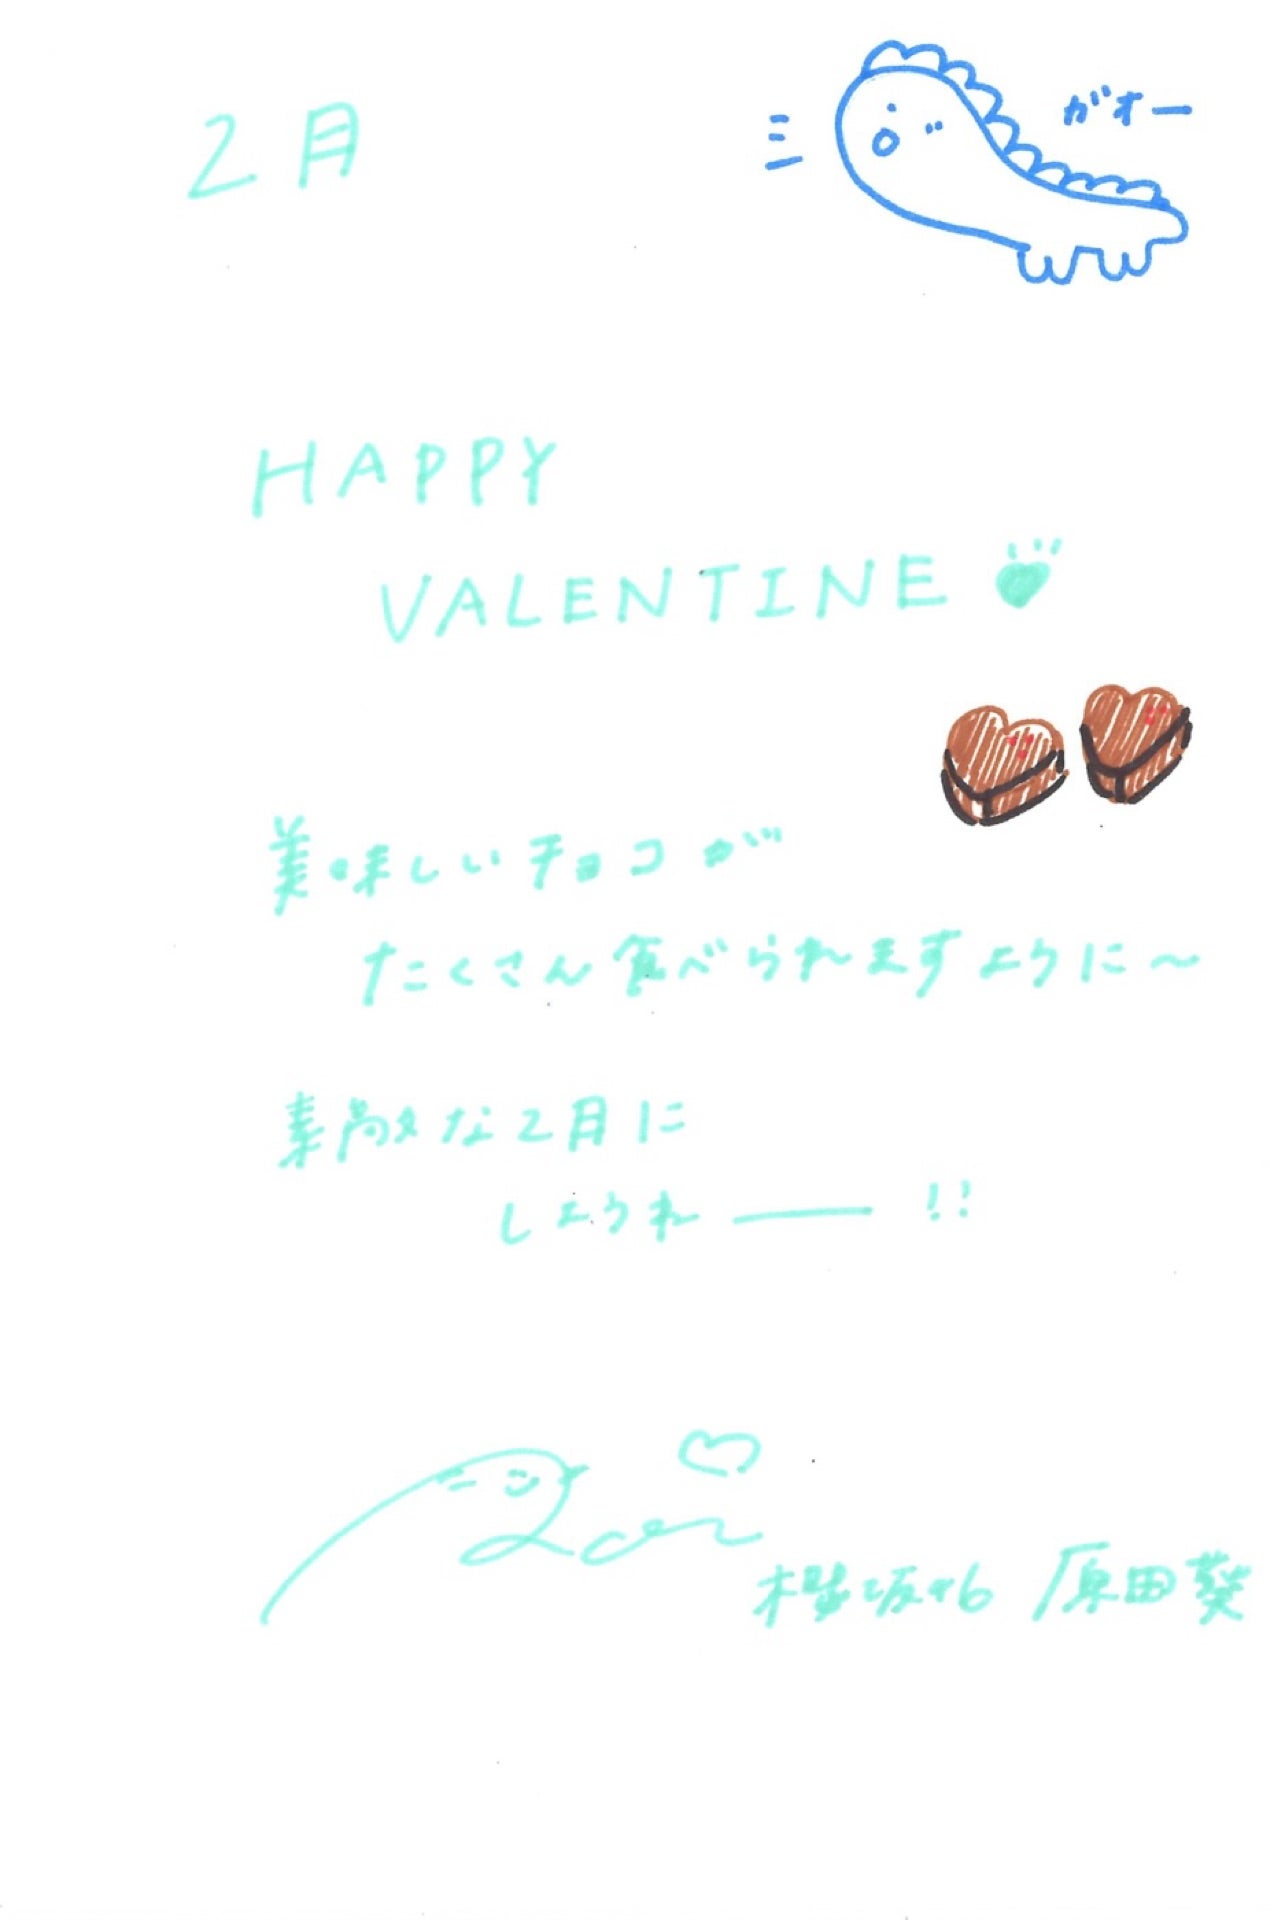 2月
ガオー
HAPPY
VALENTINE
美味しいチョコが
たくさん食べられますように〜
素敵な2月に
しようねー!!
欅坂46 原田葵